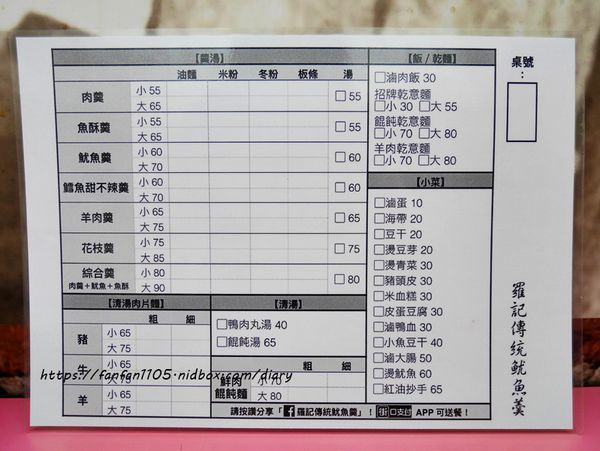 【羹湯】
油麵 米粉 冬粉 板條 湯
肉羹 小 55 大 65 □ 55
魚酥羹 小 55 大 65 □ 55
魷魚羹 小 60 大 70 □ 60
鱈魚甜不辣羹 小 60 大 70 □ 60
羊肉羹 小 65 大 75 □ 65
花枝羹 小 75 大 85 □ 75
綜合羹 小 80 大 90 □ 80
肉羹+魷魚+魚酥
【清湯肉片麵】
粗 細
豬 小 65 大 75
牛 小 65 大 75
羊 小 65 大 75
【清湯】
□鴨肉丸湯 40
□餛飩湯 65
粗 細
鮮肉餛飩麵 小 70 大 80
【飯/乾麵】
□滷肉飯 30
招牌乾意麵
□小 30 □大 55
餛飩乾意麵
□小 70 □大 80
羊肉乾意麵
□小 70 □大 80
【小菜】
□滷蛋 10
□海帶 20
□豆干 20
□燙豆芽 20
□燙青菜 30
□豬頭皮 30
□米血糕 30
□皮蛋豆腐 30
□滷鴨血 30
□小魚豆干 40
□滷大腸 50
□燙魷魚 60
□紅油抄手 65
請按讚分享「f羅記傳統魷魚羹」!街口支付 APP 可送餐!
桌號:
羅記傳統魷魚羹
https://fanfan1105.nidbox.com/diary